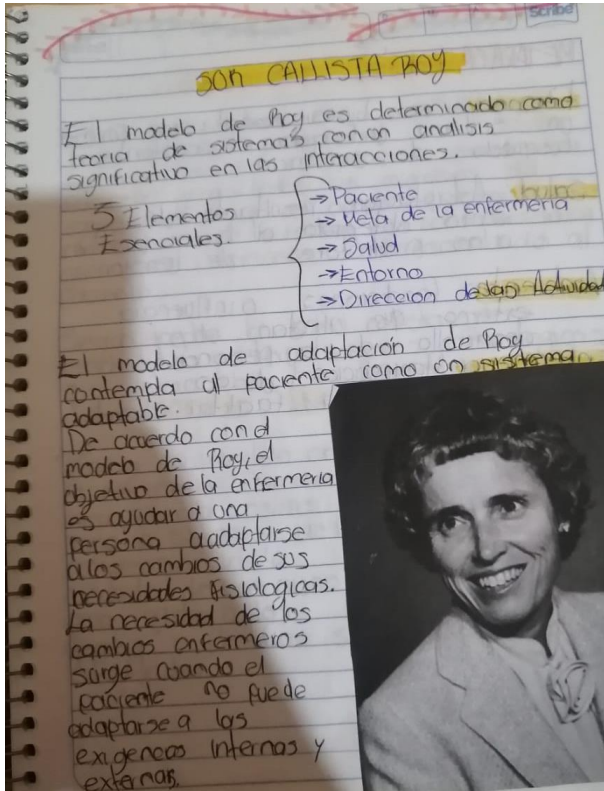 scribe
SOR CALLISTA ROY
El modelo de Roy es determinado como
teoria de sistemas con un analisis
significativo en las interacciones.
5 Elementos
Esenciales.
→Paciente
→Meta de la enfermeria
→Salud
→Entorno
→Direccion de las Actividad
El modelo de adaptación de Roy
contempla al paciente como un sisitema
adaptable.
De acuerdo con el
modelo de Roy, el
objetivo de la enfermeria
es ayudar a una
persona a adaptarse
a los cambios de sus
necesidades fisiologicas.
La necesidad de los
cambios enfermeros
surge cuando el
paciente no puede
adaptarse a las
exigencas internas y
externas.